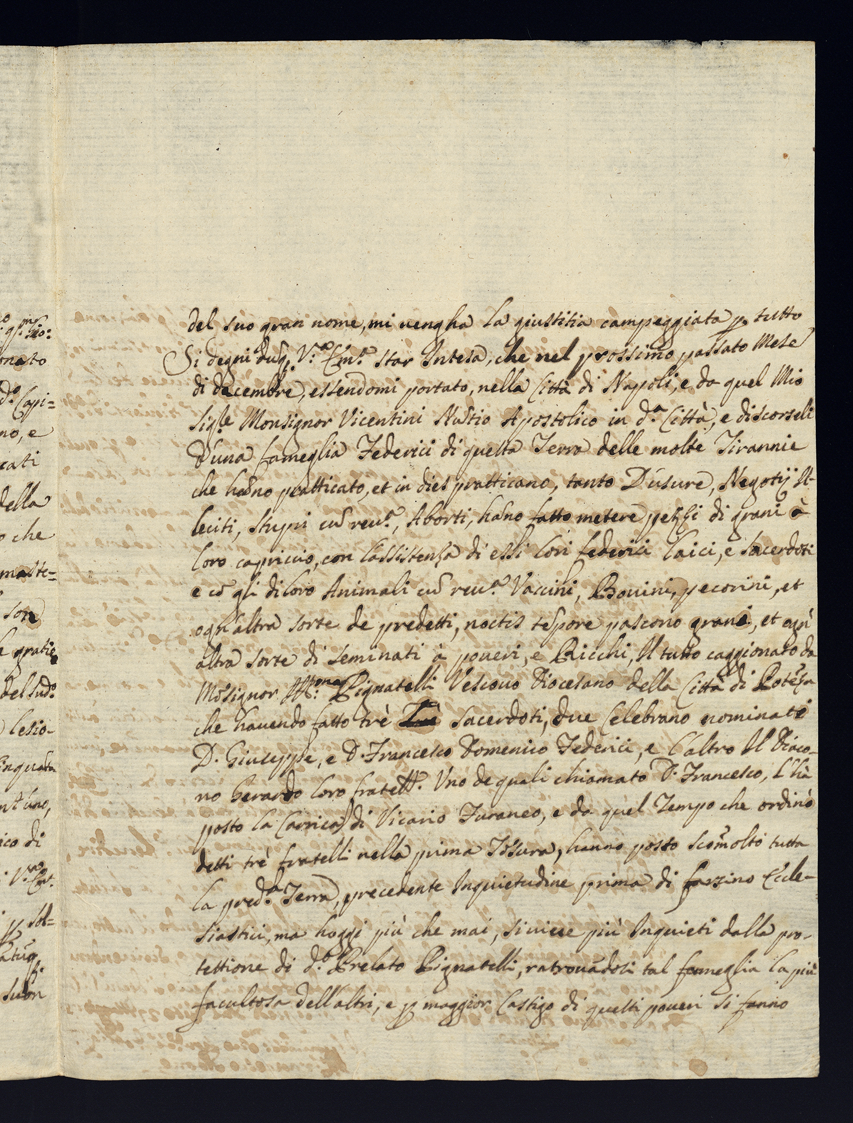 del suo gran nome, mi vengha la giustitia campeggiata p. tutto
Si degni duq. V.ra Em.a star Intesa, che nel prossimo passato Mese
di decembre, essendomi portato, nella Città di Napoli, e da quel Mio
Sig.re Monsignor Vicentini Nutio Apostolico in d.a Città, e discorseli
D'una fameglia Federici di questa Terra delle molte Tirannie
che hano pratticato, et in dies pratticano, tanto D'usure, Negotij Il-
leciti, stupri cu rev.a, Aborti, hano fatto metere pezzi di grani à
loro capriccio, con l'assistenza di essi lori federici laici, e sacerdoti
e co gli di loro Animali cu rev.a Vaccini, Bovini, pecorini, et
ogn'altra sorte de predetti, noctis tepore pascono grani, et ogni
altra sorte di seminati à poveri, e Ricchi, Il tutto caggionato da
Mosignor Ill.mo Pignatelli Vescovo Diocesano della Città di Poteza
che havendo fatto trè sacerdoti, due Celebrano nominati
D. Giuseppe, e D. Francesco Domenico Federici, e l'altro Il Diaco-
no Gerardo loro fratelli. Uno de quali chiamato D. Francesco, l'hà
posto la Carrica di Vicario Furaneo, e da quel Tempo che ordinò
detti trè fratelli nella prima Tosura, hanno posto scomolto tutta
la pred.a Terra, precedente Inquietudine prima di farsino Eccle-
siastici, ma hoggi più che mai, si vivese più Inquieti dalla pro-
tettione di d.o Prelato Pignatelli, ratrovadosi tal fameglia la più
facultosa dell'altri, e p maggior Castigo di questi poveri si fanno